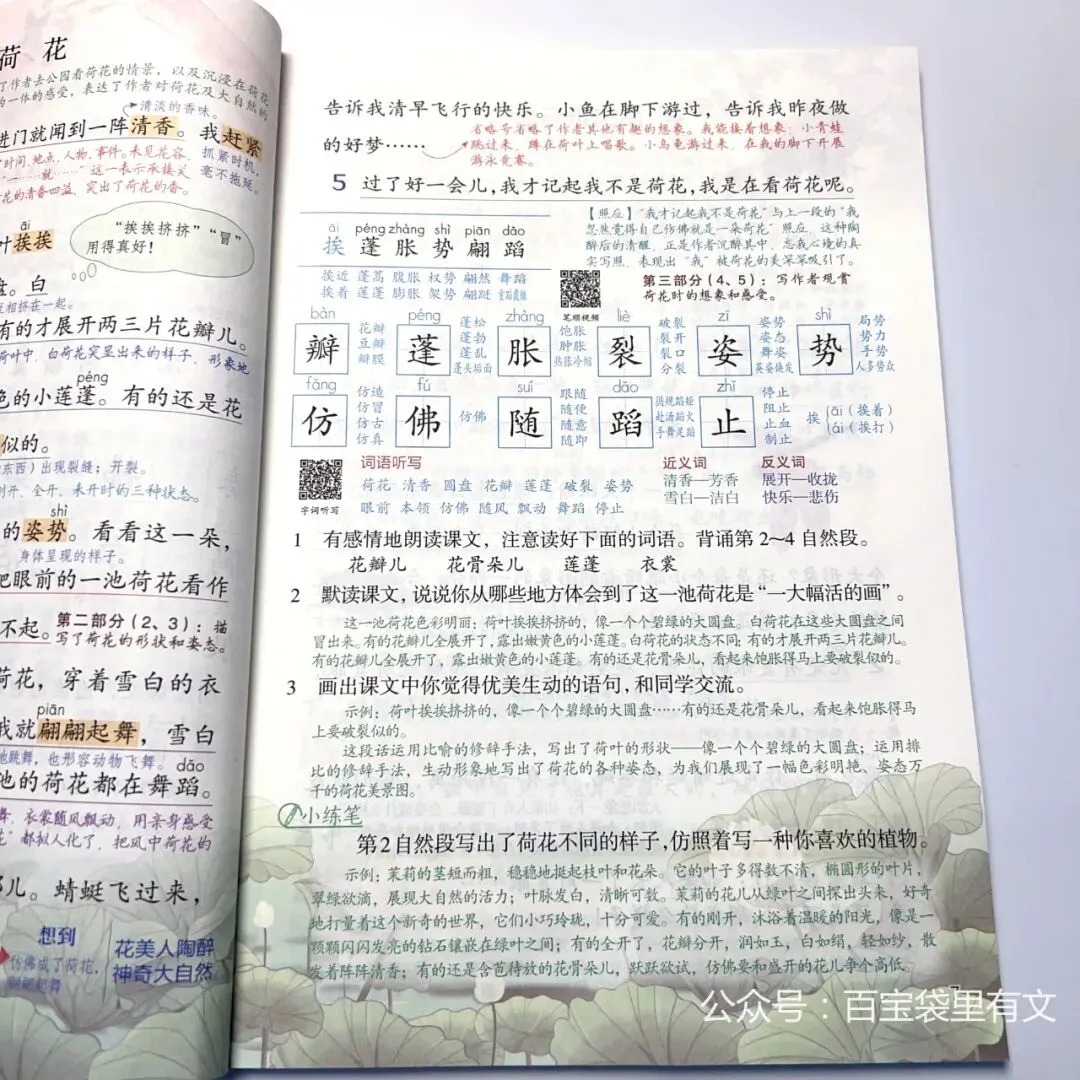 荷 花
了作者去公园看荷花的情景，以及沉浸在荷花
的一体的感受，表达了作者对荷花及大自然的
清淡的香味。
进门就闻到一阵清香。我赶紧
了时间、地点、人物、事件。未见花容，
抓紧时机，
就……”这一表示承接关
毫不拖延。
花的清香四溢，突出了荷花的香。
āi
叶挨挨
“挨挨挤挤”“冒”
用得真好！
盘。白
互相挤在一起。
有的才展开两三片花瓣儿。
荷叶中，白荷突显出来的样子，形象地
péng
色的小莲蓬。有的还是花
似的。
东西）出现裂缝；开裂。
刚开、全开、未开时的三种状态。
shì
的姿势。看看这一朵，
身体呈现的样子。
把眼前的一池荷花看作
不起。
第二部分（2、3）：描
写了荷花的形状和姿态。
荷花，穿着雪白的衣
piān
我就翩翩起舞，雪白
地跳舞，也形容动物飞舞。
dǎo
他的荷花都在舞蹈。
舞，衣裳随风飘动，用亲身感受
花”都拟人化了，把风中荷花的
那儿。蜻蜓飞过来，
想到
仿佛成了荷花，
翩翩起舞
花美人陶醉
神奇大自然
告诉我清早飞行的快乐。小鱼在脚下游过，告诉我昨夜做
的好梦……
省略号省略了作者其他有趣的想象。我能接着想象：小青蛙
跳过来，蹲在荷叶上唱歌。小乌龟游过来，在我的脚下开展
游泳竞赛。
5 过了好一会儿，我才记起我不是荷花，我是在看荷花呢。
【照应】“我才记起我不是荷花”与上一段的“我
忽然觉得自己仿佛就是一朵荷花”照应，这种陶
醉后的清醒，正是作者沉醉其中、忘我心境的真
实写照，表现出“我”被荷花的美深深吸引了。
第三部分（4、5）：写作者观赏
荷花时的想象和感受。
āi péng zhàng shì piān dǎo
挨 蓬 胀 势 翩 蹈
挨近 蓬蒿 腹胀 权势 翩然 舞蹈
挨着 莲蓬 膨胀 架势 翩跹 重蹈覆辙
笔顺视频
bàn péng zhàng liè zī shì
瓣 花瓣 豆瓣 瓣膜
蓬 蓬松 蓬勃 蓬乱 蓬头垢面
胀 饱胀 肿胀 热胀冷缩
裂 破裂 裂开 裂口 分裂
姿 姿势 姿态 舞姿 英姿焕发
势 局势 势力 手势 人多势众
fǎng fú suí dǎo zhǐ
仿 仿造 仿冒 仿古 仿真
佛 仿佛
随 跟随 随便 随意 随即
蹈 循规蹈矩 赴汤蹈火 手舞足蹈
止 停止 阻止 止血 制止
挨 āi（挨着） ái（挨打）
字词听写
词语听写
荷花 清香 圆盘 花瓣 莲蓬 破裂 姿势
眼前 本领 仿佛 随风 飘动 舞蹈 停止
近义词
清香—芳香
雪白—洁白
反义词
展开—收拢
快乐—悲伤
1 有感情地朗读课文，注意读好下面的词语。背诵第 2~4 自然段。
花瓣儿 花骨朵儿 莲蓬 衣裳
2 默读课文，说说你从哪些地方体会到了这一池荷花是“一大幅活的画”。
这一池荷花色彩明丽：荷叶挨挨挤挤的，像一个个碧绿的大圆盘。白荷花在这些大圆盘之间
冒出来。有的花瓣儿全展开了，露出嫩黄色的小莲蓬。白荷花的状态不同：有的才展开两三片花瓣儿。
有的花瓣儿全展开了，露出嫩黄色的小莲蓬。有的还是花骨朵儿，看起来饱胀得马上要破裂似的。
3 画出课文中你觉得优美生动的语句，和同学交流。
示例：荷叶挨挨挤挤的，像一个个碧绿的大圆盘……有的还是花骨朵儿，看起来饱胀得马
上要破裂似的。
这段话运用比喻的修辞手法，写出了荷叶的形状——像一个个碧绿的大圆盘；运用排
比的修辞手法，生动形象地写出了荷花的各种姿态，为我们展现了一幅色彩明艳、姿态万
千的荷花美景图。
小练笔
第2自然段写出了荷花不同的样子，仿照着写一种你喜欢的植物。
示例：茉莉的茎短而粗，稳稳地挺起枝叶和花朵。它的叶子多得数不清，椭圆形的叶片，
翠绿欲滴，展现大自然的活力；叶脉发白，清晰可数。茉莉的花儿从绿叶之间探出头来，好奇
地打量着这个新奇的世界，它们小巧玲珑，十分可爱。有的刚开，沐浴着温暖的阳光，像是一
颗颗闪闪发亮的钻石镶嵌在绿叶之间；有的全开了，花瓣分开，润如玉，白如绵，轻如纱，散
发着阵阵清香；有的还是含苞待放的花骨朵儿，跃跃欲试，仿佛要和盛开的花儿争个高低。
7
公众号：百宝袋里有文